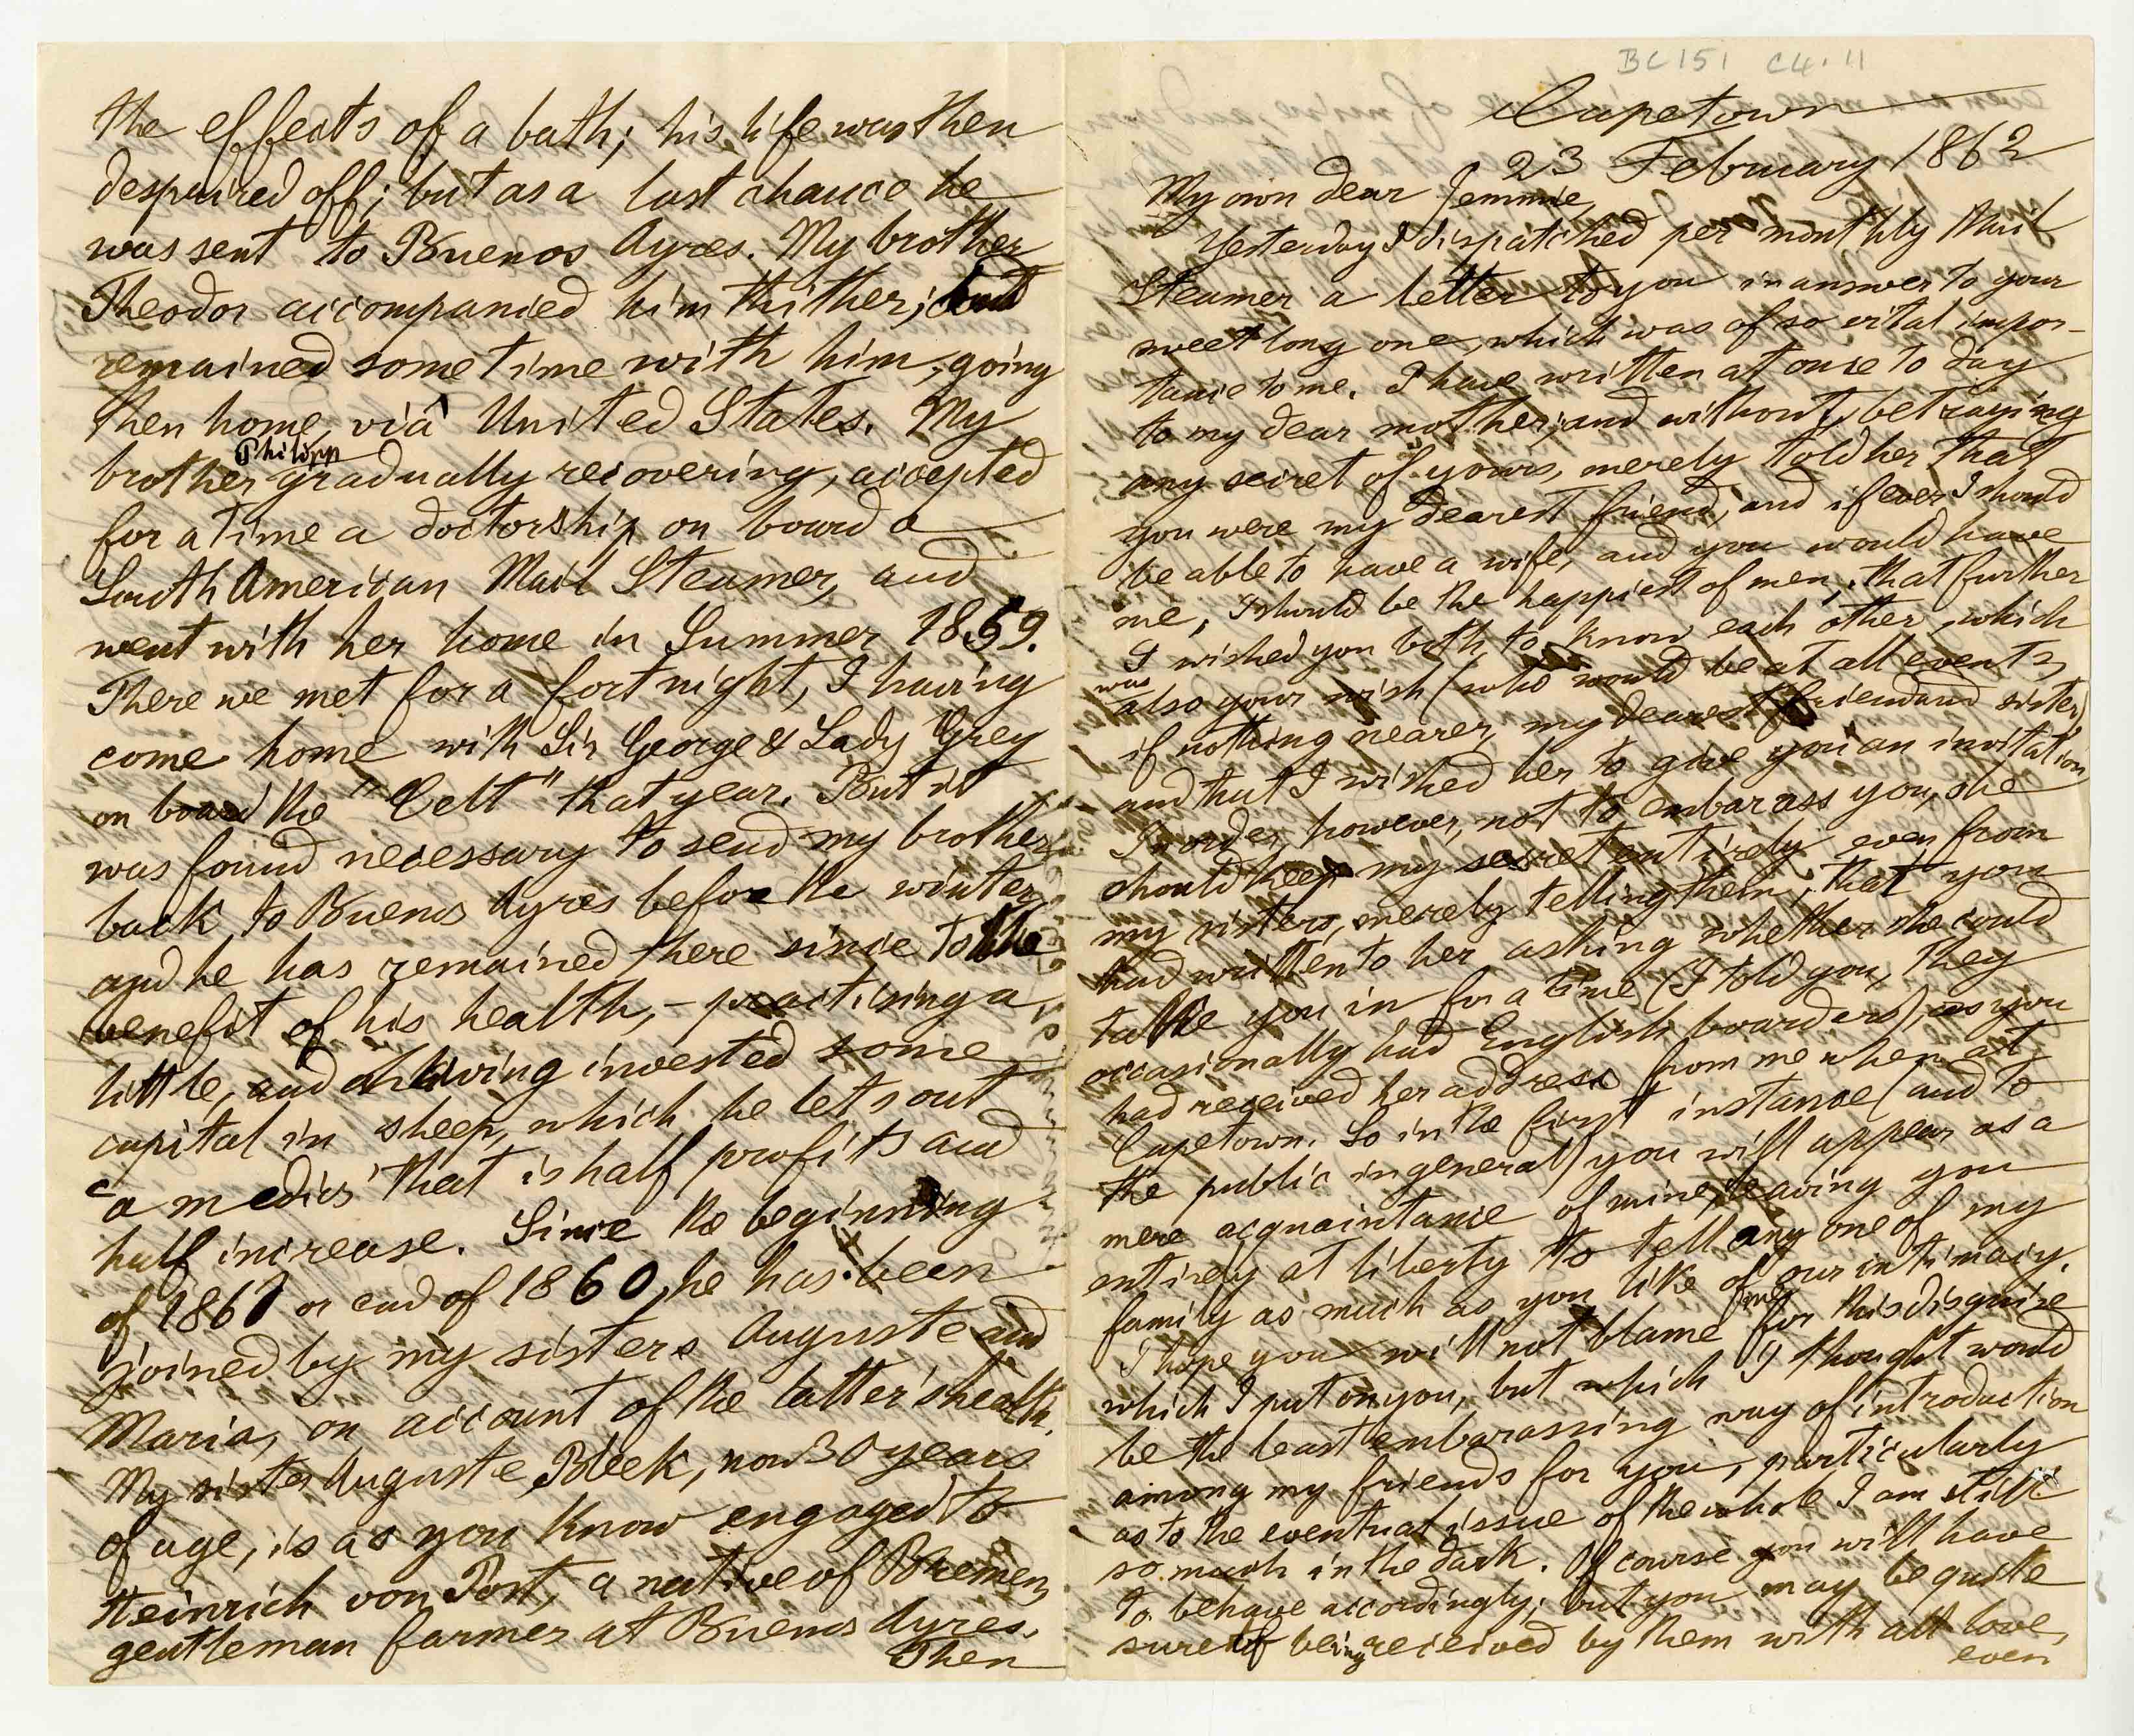 BC151 C4.11
Capetown
23 February 1862
My own dear Jemmie,
Yesterday I dispatched per monthly Mail
Steamer a letter to you in answer to your
sweet long one, which was of so vital impor-
tance to me. I have written at once to day
to my dear mother; and without betraying
any secret of yours, merely told her that
you were my dearest friend, and if ever I should
be able to have a wife, and you would have
me, I should be the happiest of men, that further
I wished you both to know each other, which
was
also your wish (who would be at all events,
if nothing nearer, my dearest friend and sister)
and that I wished her to give you an invitation
In order, however, not to embarass you, she
should keep my secret entirely even from
my sisters, merely telling them, that you
had written to her asking whether she could
take you in for a time (I told you, they
occasionally had English boarders), as you
had received her address from me when at
Capetown. So in the first instance (and to
the public in general) you will appear as a
mere acquaintance of mine, leaving you
entirely at liberty to tell any one of my
family as much as you like of our intimacy.
I hope you will not blame me for this disguise
which I put on you, but which I thought would
be the least embarassing way of introduction
among my friends for you, particularly
as to the eventual issue of the whole I am still
so much in the dark. Of course you will have
to behave accordingly; but you may be quite
sure of being received by them with all love,
even
the effects of a bath; his life was then
despaired off; but as a last chance he
was sent to Buenos Ayres. My brother
Theodor accompanied him thither; and
remained some time with him, going
then home, viâ United States. My
Philipp
brother gradually recovering, accepted
for a time a doctorship on board a
South American Mail Steamer, and
went with her home in Summer 1859.
There we met for a fortnight, I having
come home with Sir George & Lady Grey
on board the "Celt" that year. But it
was found necessary to send my brother
back to Buenos Ayres before the winter,
and he has remained there since to the
benefit of his health, - practising a
little, and having invested some
capital in sheep, which he lets out
"a medias" that is half profits and
half increase. Since the beginning
of 1861 or end of 1860, he has been
joined by my sisters Auguste and
Maria, on account of the latter's health.
My sister Auguste Bleek, now 30 years
of age, is as you know engaged to
Heinrich von Post, a native of Bremen,
gentleman farmer at Buenos Ayres.
Then